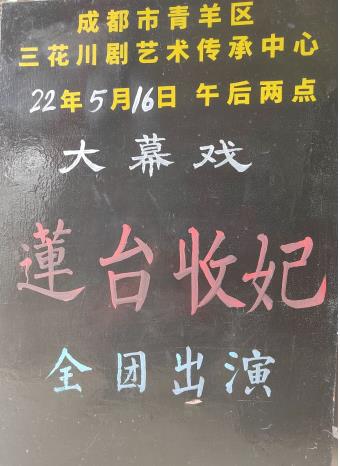 成都市青羊区
三花川剧艺术传承中心
22年5月16日 午后两点
大幕戏
蓮台收妃
全团出演